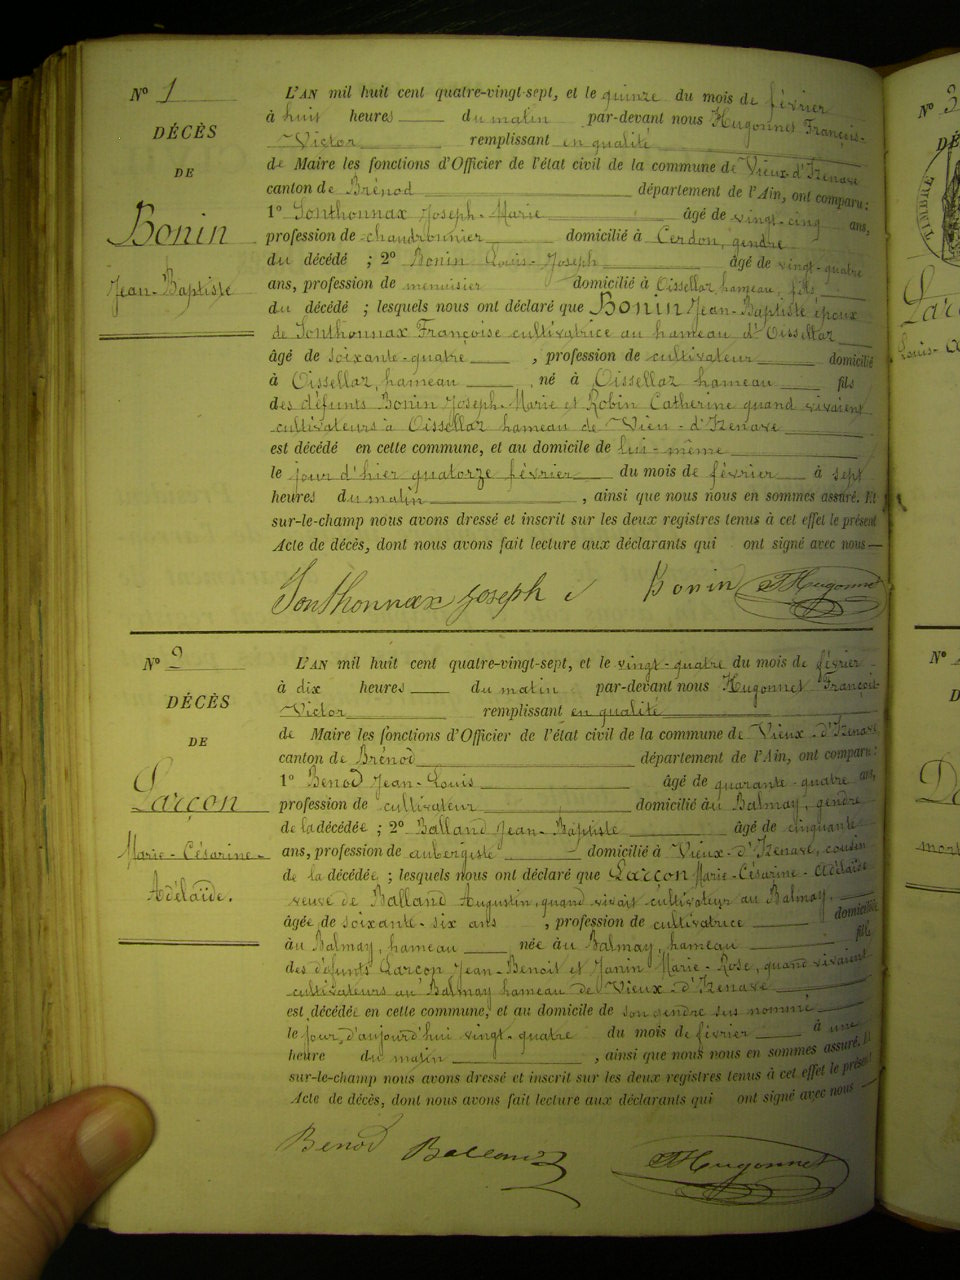 Nº 1
DÉCÈS
DE
Bonin
Jean-Baptiste
L'AN mil huit cent quatre-vingt-sept, et le quinze du mois de février
à huit heures du matin par-devant nous Hugonnet François-
Victor remplissant en qualité
de Maire les fonctions d'Officier de l'état civil de la commune de Vieux-d'Izenave
canton de Brénod département de l'Ain, ont comparu :
1º Sonthonnax Joseph-Marie âgé de vingt-cinq ans,
profession de chaudronnier domicilié à Cerdon, gendre
du décédé ; 2º Bonin Louis-Joseph âgé de vingt-quatre
ans, profession de menuisier domicilié à Oissellaz, hameau, fils
du décédé ; lesquels nous ont déclaré que Bonin Jean-Baptiste époux
de Sonthonnax Françoise cultivatrice au hameau d'Oissellaz
âgé de soixante-quatre , profession de cultivateur domicilié
à Oissellaz, hameau , né à Oissellaz hameau fils
des défunts Bonin Joseph-Marie et Robin Catherine quand vivaient
cultivateurs à Oissellaz hameau de Vieu-d'Izenave
est décédé en cette commune, et au domicile de lui-même
le jour d'hier quatorze février du mois de février à sept
heures du matin , ainsi que nous nous en sommes assuré. Et
sur-le-champ nous avons dressé et inscrit sur les deux registres tenus à cet effet le présent
Acte de décès, dont nous avons fait lecture aux déclarants qui ont signé avec nous
Sonthonnax Joseph Bonin Hugonnet
Nº 2
DÉCÈS
DE
Larçon
Marie-Césarine-
Adélaïde.
L'AN mil huit cent quatre-vingt-sept, et le vingt-quatre du mois de février
à dix heures du matin par-devant nous Hugonnet François-
Victor remplissant en qualité
de Maire les fonctions d'Officier de l'état civil de la commune de Vieux-d'Izenave
canton de Brénod département de l'Ain, ont comparu :
1º Benod Jean-Louis âgé de quarante-quatre ans,
profession de cultivateur domicilié au Balmay, gendre
de la décédée ; 2º Balland Jean-Baptiste âgé de cinquante
ans, profession de aubergiste domicilié à Vieux-d'Izenave, cousin
de la décédée ; lesquels nous ont déclaré que Larçon Marie-Césarine-Adélaïde
veuve de Balland Augustin, quand vivait cultivateur au Balmay,
âgée de soixante-six ans , profession de cultivatrice domiciliée
au Balmay, hameau , née au Balmay, hameau fille
des défunts Larçon Jean-Benoit et Janin Marie-Rose, quand vivaient
cultivateurs au Balmay hameau de Vieux-d'Izenave
est décédée en cette commune, et au domicile de son gendre sus nommé
le jour d'aujourd'hui vingt-quatre du mois de février à une
heure du matin , ainsi que nous nous en sommes assuré. Et
sur-le-champ nous avons dressé et inscrit sur les deux registres tenus à cet effet le présent
Acte de décès, dont nous avons fait lecture aux déclarants qui ont signé avec nous
Benod Balland Hugonnet
Nº
TIMBRE